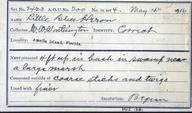 No. 7403 A.O.U. No. 200 No. in set 4. May 4th 191
Name Little Blue Heron
Collector Identity Correct
Locality Amelia Island, Florida.
Nest situated 4 ft up in bush in swamp near
a large marsh
Composed outside of coarse sticks and twigs
Lined with finer
Incubation: Begun